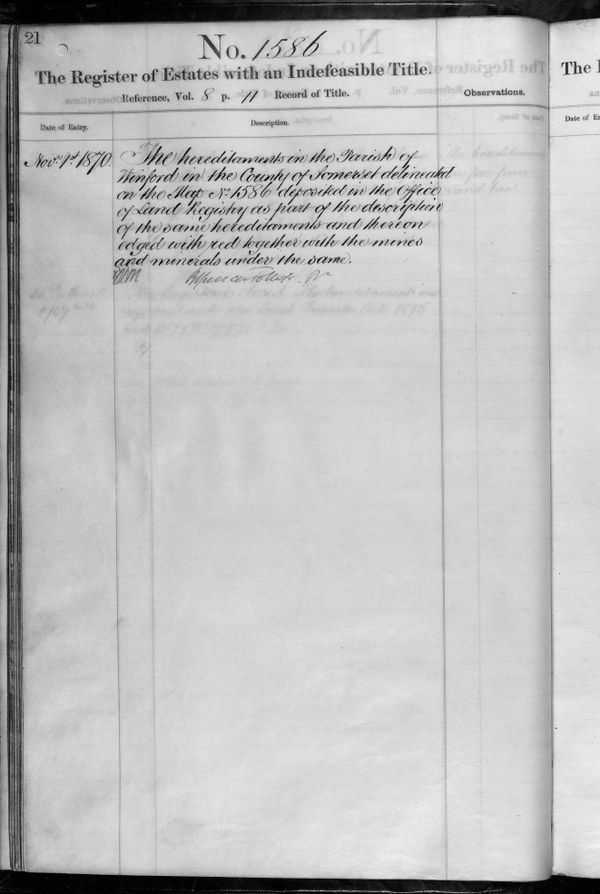 21
No. 1586
The Register of Estates with an Indefeasible Title.
Reference, Vol. 8 p. 11 Record of Title.
Observations.
Date of Entry.
Description.
Nov. 1st 1870.
The hereditaments in the Parish of
Winford in the County of Somerset delineated
on the Map No. 1586 deposited in the Office
of Land Registry as part of the description
of the same hereditaments and thereon
edged with red together with the mines
and minerals under the same.
The
Date of En